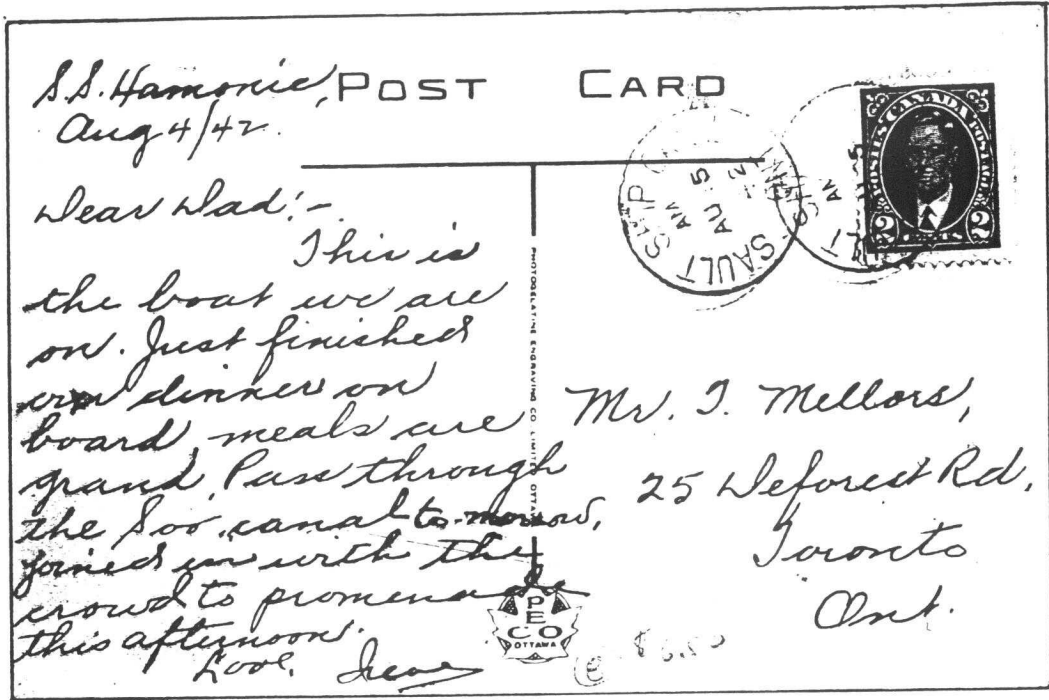 S.S. Hamonic,
Aug 4/42
POST CARD
Dear Dad:-
This is
the boat we are
on. Just finished
our dinner on
board, meals are
grand. Pass through
the Soo canal to-morrow,
joined in with the
crowd to promenade
this afternoon.
Love, Irene
PHOTOGELATINE ENGRAVING CO. LIMITED OTTAWA
PECO
OTTAWA
SAULT STE
AM
AU 5
POSTES CANADA POSTAGE
2 CENTS 2
Mr. T. Mellors,
25 Deforest Rd,
Toronto
Ont.